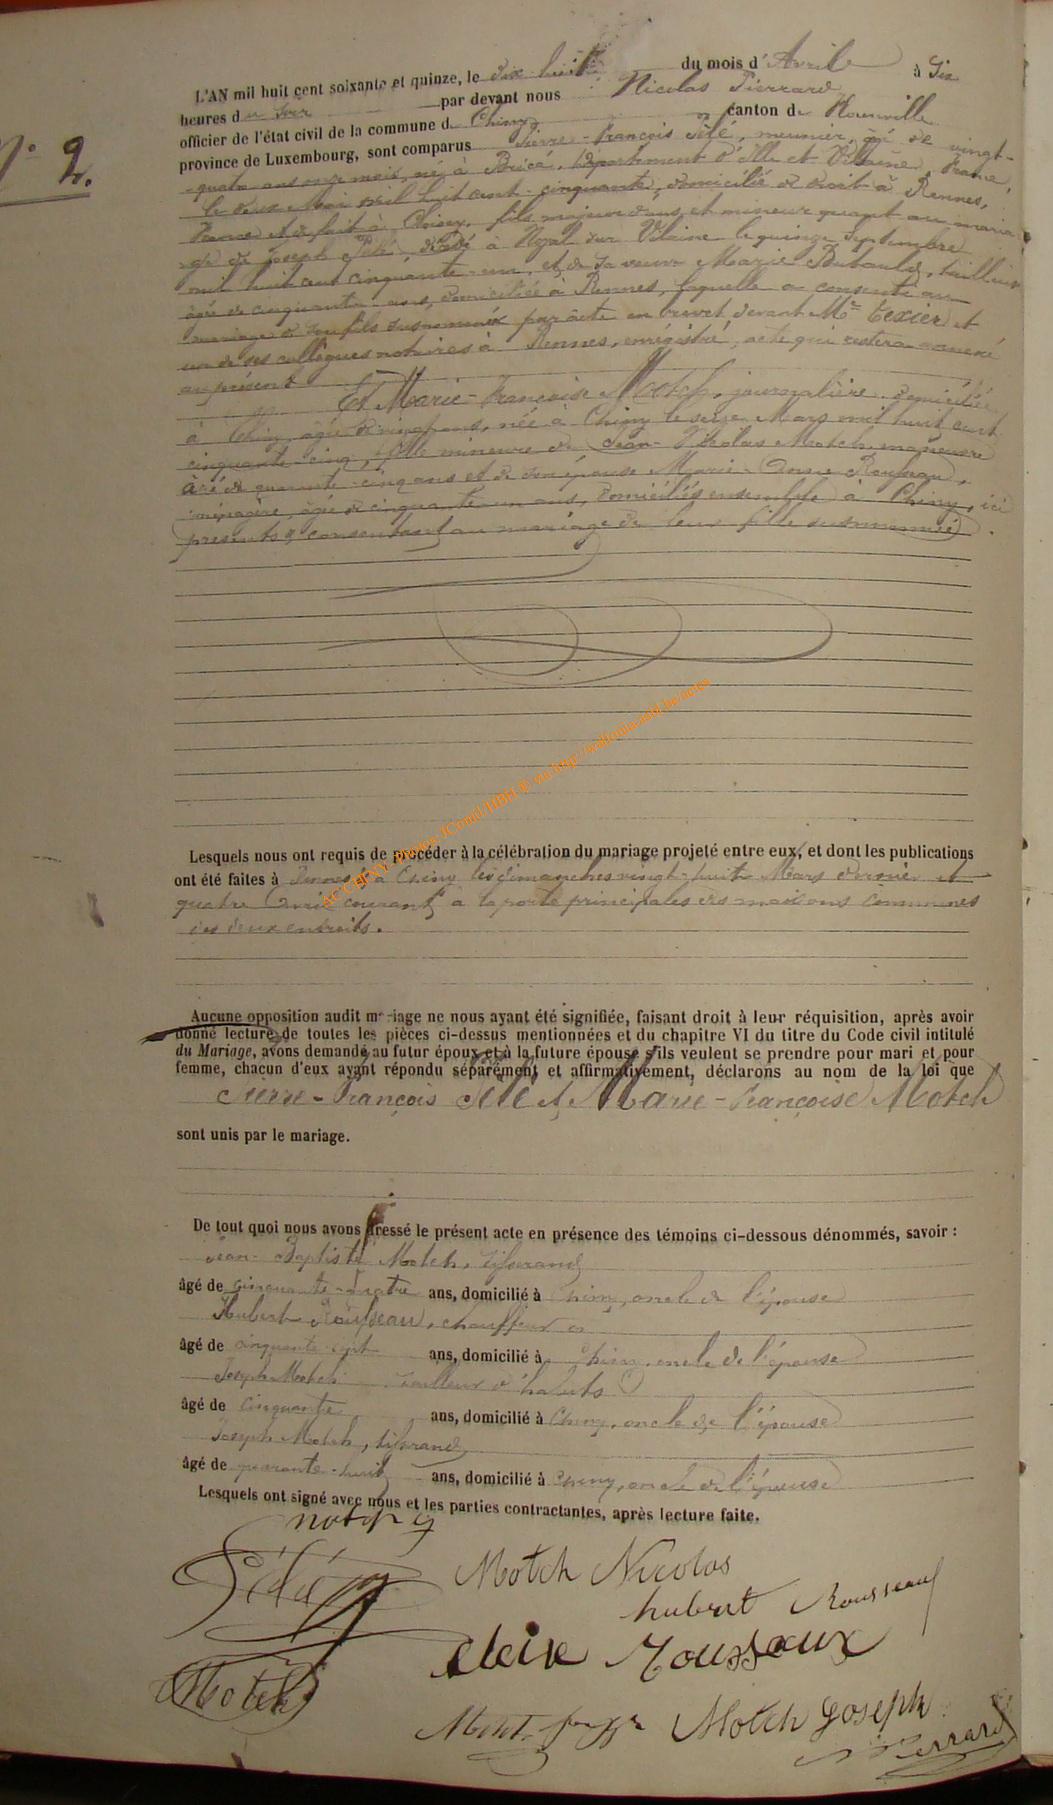 N° 2.
L'AN mil huit cent soixante et quinze, le dix huit du mois d'Avril à six
heures du soir par devant nous Nicolas Pierrard
officier de l'état civil de la commune de Chiny canton de Florenville
province de Luxembourg, sont comparus Pierre-François Pélé, meunier, âgé de vingt-
quatre ans onze mois, né à Brécé, Département d'Ille et Vilaine, France,
le deux Mai mil huit cent cinquante, domicilié de droit à Rennes,
France et de fait à Chiny, fils majeur d'ans et mineur quant au maria-
ge de Joseph Pélé, décédé à Noyal sur Vilaine le quinze Septembre
mil huit cent cinquante-un, et de sa veuve Marie,
âgée de cinquante ans, domiciliée à Rennes, laquelle a consenti au
mariage de son fils susnommé par acte en brevet devant Me Texier et
un de ses collègues notaires à Rennes, enrégistré, acte qui restera annexé
au présent
Et Marie-Françoise Motch, journalière, domiciliée
à Chiny, âgée de vingt ans, née à Chiny le seize Mars mil huit cent
cinquante-cinq, fille mineure de Jean-Nicolas Motch, manœuvre
âgé de quarante-cinq ans et de son épouse Marie-Anne Rousseau,
ménagère, âgée de cinquante-un ans, domiciliés ensemble à Chiny, ici
présents & consentant au mariage de leur fille susnommée.
Lesquels nous ont requis de procéder à la célébration du mariage projeté entre eux, et dont les publications
ont été faites à Rennes & à Chiny les dimanches vingt-huit Mars dernier et
quatre Avril courant à la porte principales des maisons communes
des deux endroits.
Aucune opposition audit mariage ne nous ayant été signifiée, faisant droit à leur réquisition, après avoir
donné lecture de toutes les pièces ci-dessus mentionnées et du chapitre VI du titre du Code civil intitulé
du Mariage, avons demandé au futur époux et à la future épouse s'ils veulent se prendre pour mari et pour
femme, chacun d'eux ayant répondu séparément et affirmativement, déclarons au nom de la loi que
Pierre-François Pélé & Marie-Françoise Motch
sont unis par le mariage.
De tout quoi nous avons dressé le présent acte en présence des témoins ci-dessous dénommés, savoir :
Jean-Baptiste Motch, tisserand
âgé de cinquante-quatre ans, domicilié à Chiny, oncle de l'épouse
Hubert Rousseau, chauffeur
âgé de cinquante-sept ans, domicilié à Chiny, oncle de l'épouse
Joseph Motch tailleur d'habits
âgé de cinquante ans, domicilié à Chiny, oncle de l'épouse
Joseph Motch, tisserand
âgé de quarante-huit ans, domicilié à Chiny, oncle de l'épouse
Lesquels ont signé avec nous et les parties contractantes, après lecture faite.
Pélé Motch Nicolas
hubert Rousseau
Rousseaux
Motch
Motch Joseph
Pierrard